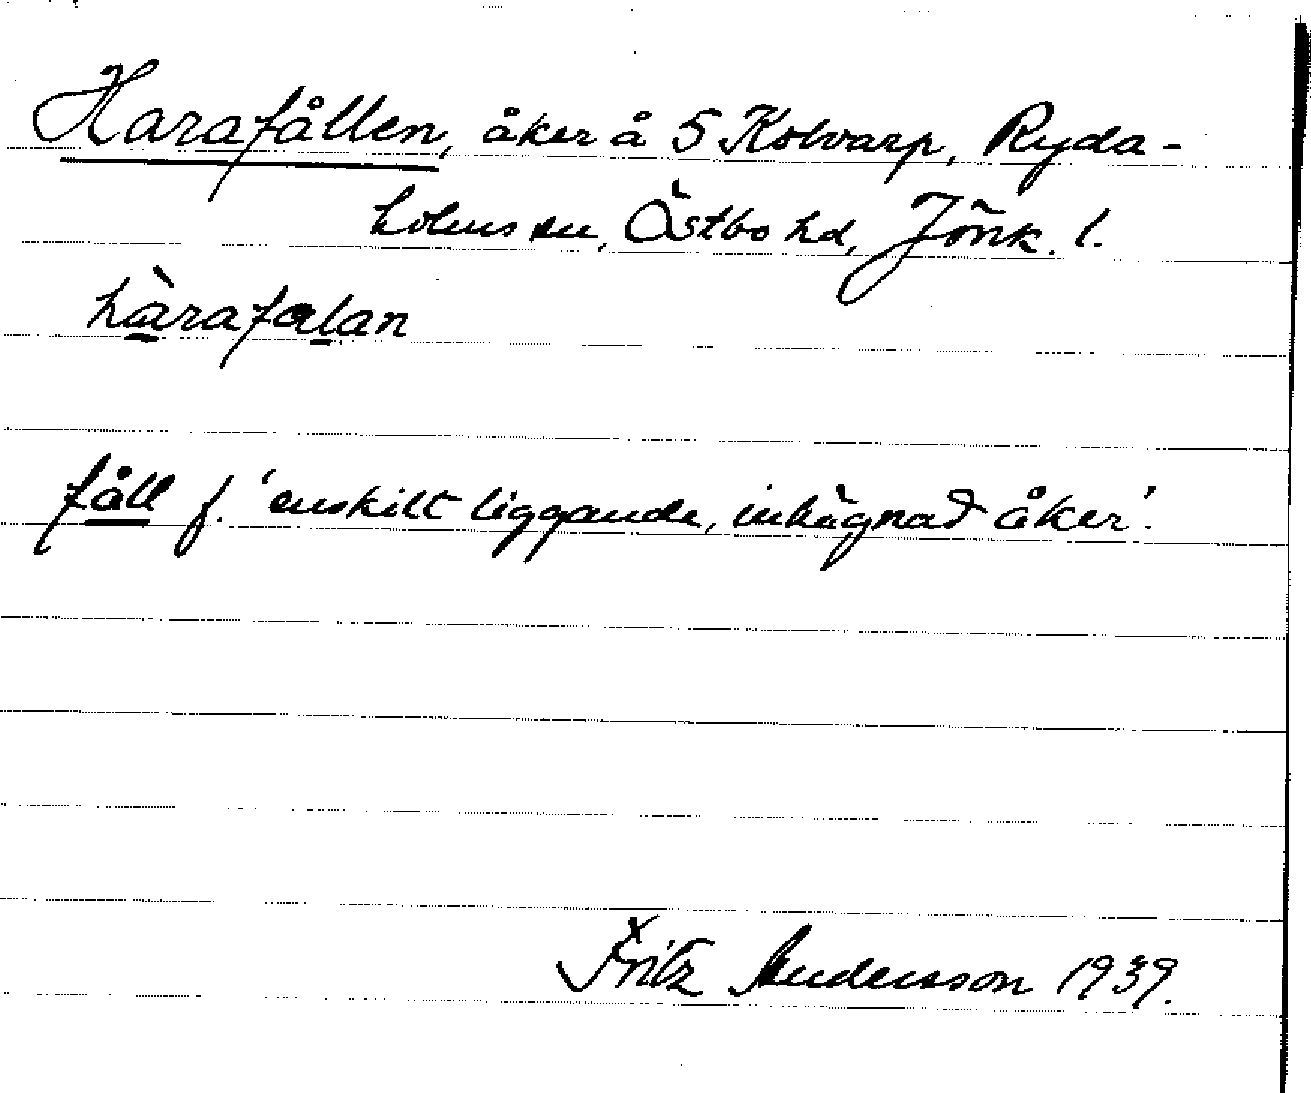 Harafållen, åker å 5 Kolvarp, Ryda-
holms sn, Östbo hd, Jönk. l.
hàrafalan
fåll f. 'enskilt liggande, inhägnad åker'.
Fritz Andersson 1939.